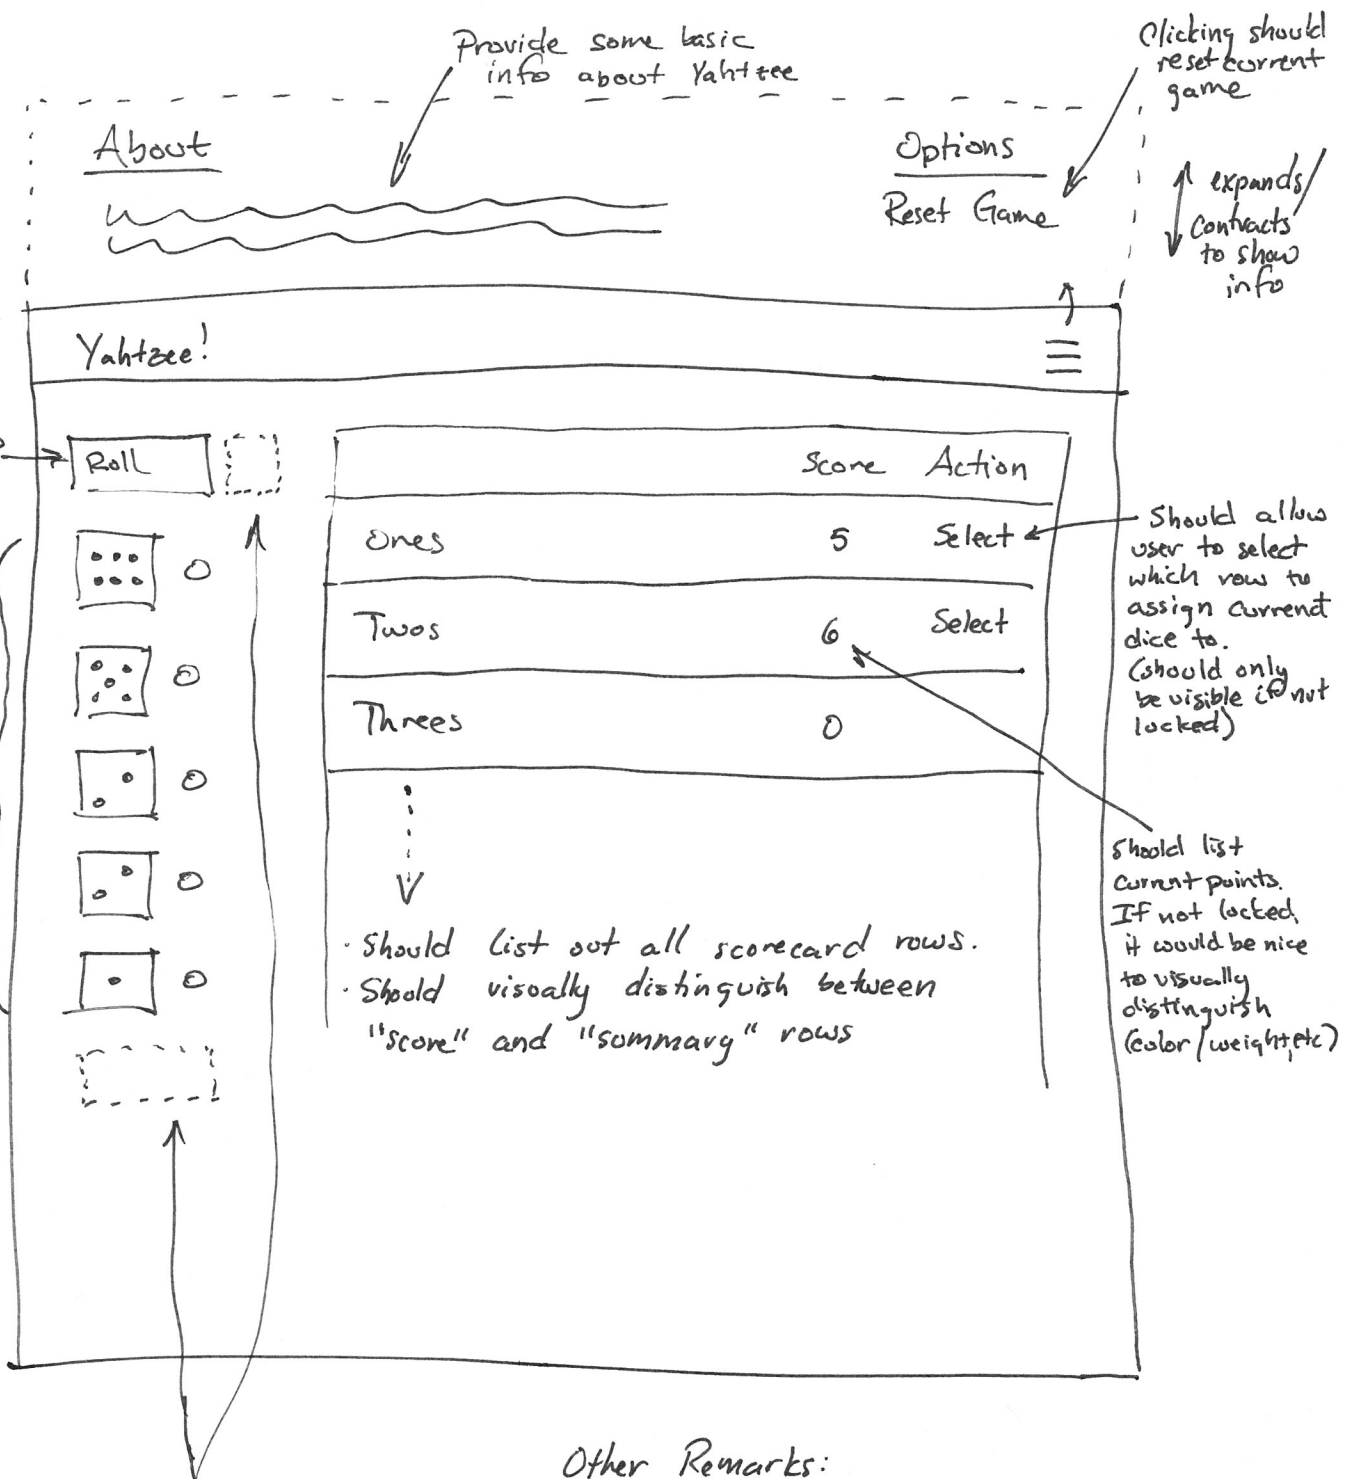 Provide some basic
info about Yahtzee
Clicking should
reset current
game
About
Options
Reset Game
expands/
contracts
to show
info
Yahtzee!
Roll
Score Action
Ones 5 Select
Twos 6 Select
Threes 0
Should allow
user to select
which row to
assign current
dice to.
(should only
be visible if not
locked)
Should list
current points.
If not locked,
it would be nice
to visually
distinguish
(color/weight, etc)
· Should list out all scorecard rows.
· Should visually distinguish between
"score" and "summary" rows
Other Remarks: